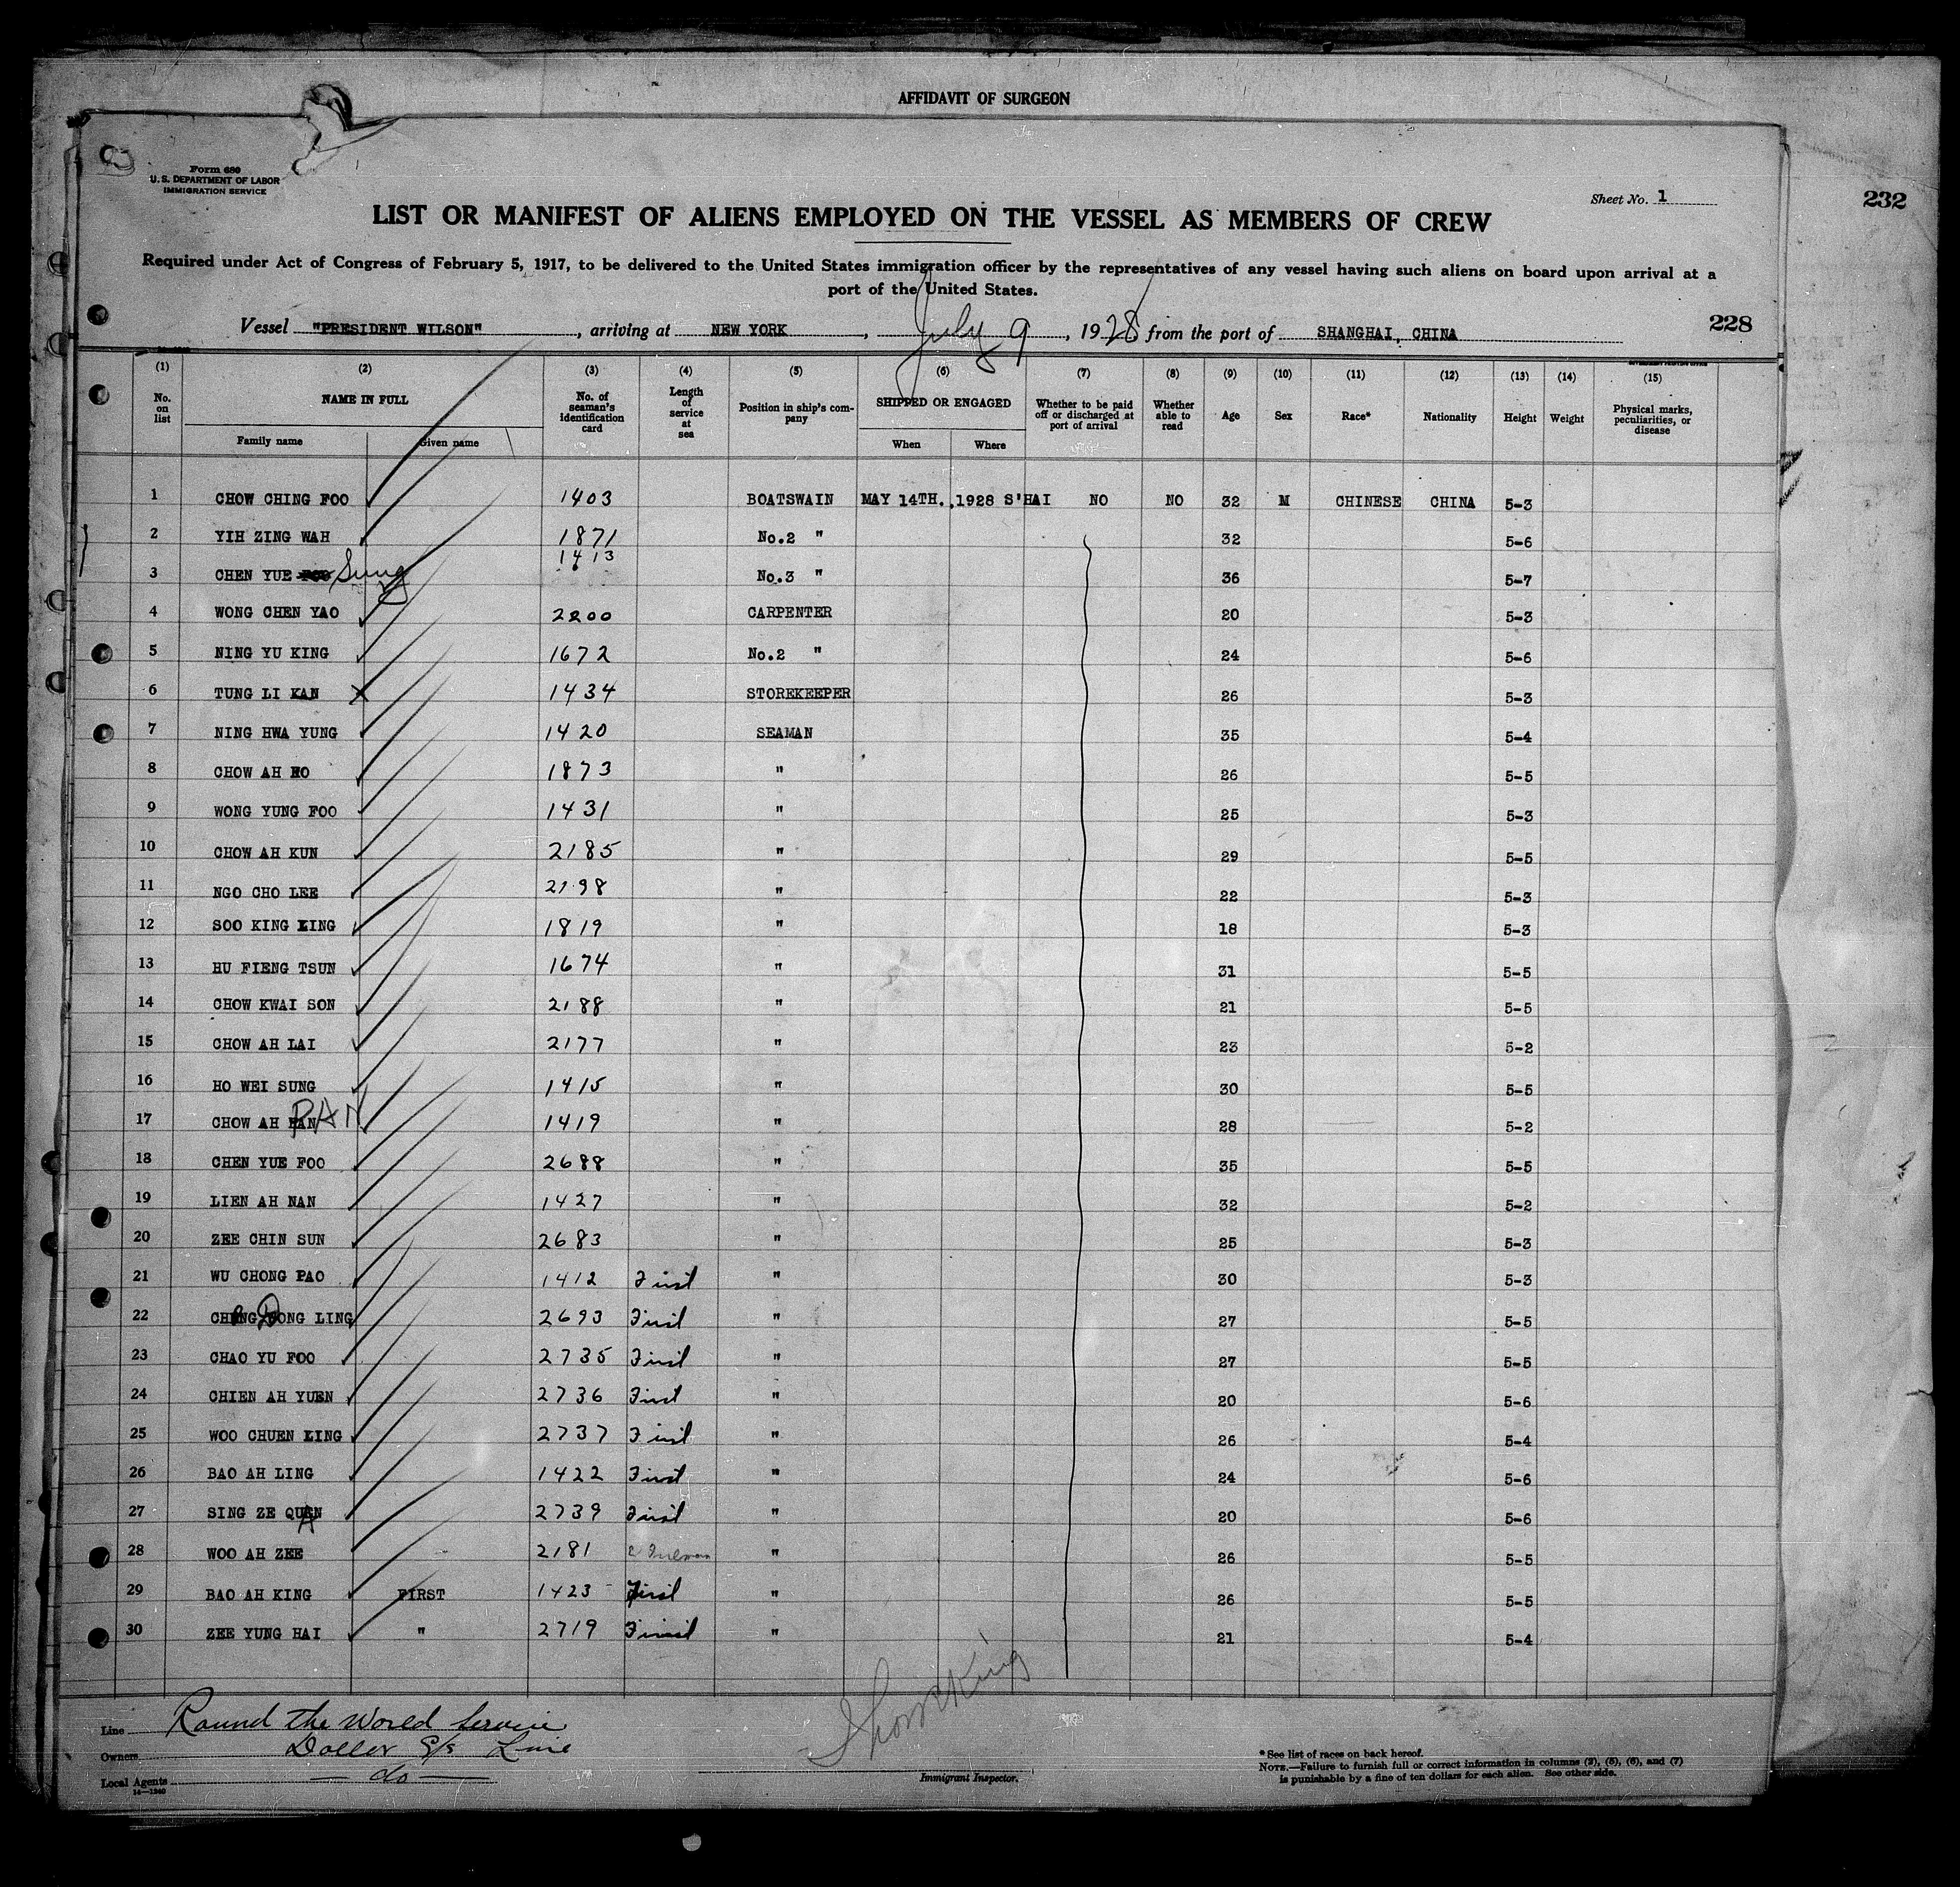 AFFIDAVIT OF SURGEON
Form 680
U. S. DEPARTMENT OF LABOR
IMMIGRATION SERVICE
Sheet No. 1
232
LIST OR MANIFEST OF ALIENS EMPLOYED ON THE VESSEL AS MEMBERS OF CREW
Required under Act of Congress of February 5, 1917, to be delivered to the United States immigration officer by the representatives of any vessel having such aliens on board upon arrival at a
port of the United States.
Vessel "PRESIDENT WILSON", arriving at NEW YORK, July 9, 1928, from the port of SHANGHAI, CHINA
228
(1) (2) (3) (4) (5) (6) (7) (8) (9) (10) (11) (12) (13) (14) (15)
No. on list NAME IN FULL Family name Given name No. of seaman's identification card Length of service at sea Position in ship's company SHIPPED OR ENGAGED When Where Whether to be paid off or discharged at port of arrival Whether able to read Age Sex Race* Nationality Height Weight Physical marks, peculiarities, or disease
1 CHOW CHING FOO 1403 BOATSWAIN MAY 14TH.,1928 S'HAI NO NO 32 M CHINESE CHINA 5-3
2 YIH ZING WAH 1871 No.2 " 32 5-6
3 CHEN YUE Sung 1413 No.3 " 36 5-7
4 WONG CHEN YAO 2200 CARPENTER 20 5-3
5 NING YU KING 1672 No.2 " 24 5-6
6 TUNG LI KAN 1434 STOREKEEPER 26 5-3
7 NING HWA YUNG 1420 SEAMAN 35 5-4
8 CHOW AH HO 1873 " 26 5-5
9 WONG YUNG FOO 1431 " 25 5-3
10 CHOW AH KUN 2185 " 29 5-5
11 NGO CHO LEE 2198 " 22 5-3
12 SOO KING LING 1819 " 18 5-3
13 HU FIENG TSUN 1674 " 31 5-5
14 CHOW KWAI SON 2188 " 21 5-5
15 CHOW AH LAI 2177 " 23 5-2
16 HO WEI SUNG 1415 " 30 5-5
17 CHOW AH PAN 1419 " 28 5-2
18 CHEN YUE FOO 2688 " 35 5-5
19 LIEN AH NAN 1427 " 32 5-2
20 ZEE CHIN SUN 2683 " 25 5-3
21 WU CHONG PAO 1412 First " 30 5-3
22 DONG LING 2693 First " 27 5-5
23 CHAO YU FOO 2735 First " 27 5-5
24 CHIEN AH YUEN 2736 First " 20 5-6
25 WOO CHUEN LING 2737 First " 26 5-4
26 BAO AH LING 1422 First " 24 5-6
27 SING ZE QUAN 2739 First " 20 5-6
28 WOO AH ZEE 2181 " 26 5-5
29 BAO AH KING FIRST 1423 First " 26 5-5
30 ZEE YUNG HAI " 2719 First " 21 5-4
Line Round the World Service
Owners Dollar S/S Line
Local Agents do
14—1240
Immigrant Inspector.
* See list of races on back hereof.
NOTE.—Failure to furnish full or correct information in columns (2), (5), (6), and (7)
is punishable by a fine of ten dollars for each alien. See other side.